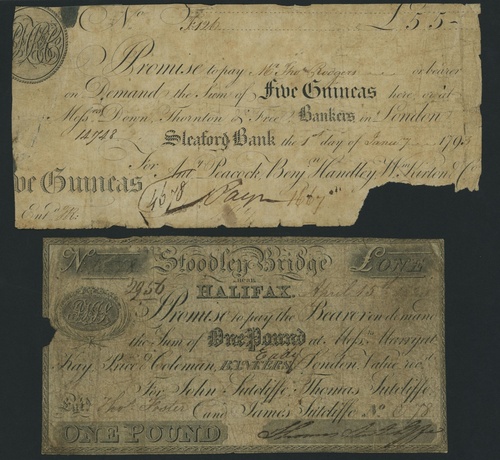 No F126 £5 5 -
Promise to pay Mr Thos Rodgers or bearer
on Demand the Sum of Five Guineas here or at
Messrs Down, Thornton & Free Bankers in London
14948 Sleaford Bank the 1st day of 179
For Peacock, Handley, Kirton, Co
ve Guineas
Entd
No Stoodley Bridge £ONE
2956 near
HALIFAX. April 15
Promise to pay the Bearer on demand
the Sum of One Pound at Messrs
Kay Price & Coleman BANKERS London Value recd
For John Sutcliffe Thomas Sutcliffe
Entd Thos Foster and James Sutcliffe No
ONE POUND